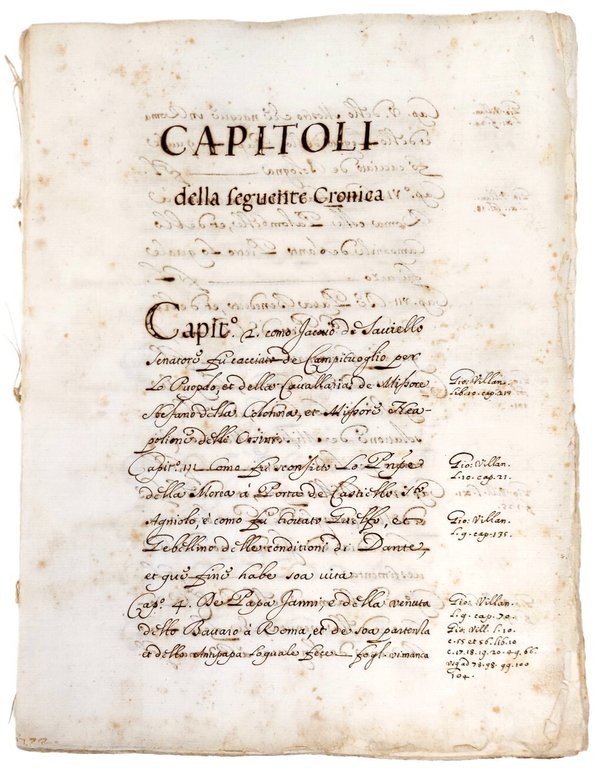 CAPITOLI
della seguente Cronica
Capit.º 2. como Jacovo de Saviello
Senatore fu cacciato de Campituoglio per
Lo Puopolo, et della Cavallaria de Missore
Stefano della Colonna, et Missore Nea-
polione delle Orsine.
Gio: Villan.
lib. 10. cap. 119
Capit.º III. Como fu sconfitto Lo Prñpe
della Morea à Porta de Castiello S.to
Agniolo, e como fu trovato Guelfo, et
Gebellino delle conditioni de Dante
et que fine habe soa vita
Gio: Villan.
l. 10. cap. 21.
Gio: Villan.
l. 9. cap. 135.
Cap.º 4. De Papa Janni, e della venuta
dello Bavaro à Roma, et de soa partenza
et dello Antipapa loquale fece fogl. vi manca
Gio: Villan.
l. 9. cap. 79.
Gio: Vill. l. 10.
c. 55 et 56. lib. 10
c. 17. 18. 19. 20. 49. 66.
98. 99. 100
104.